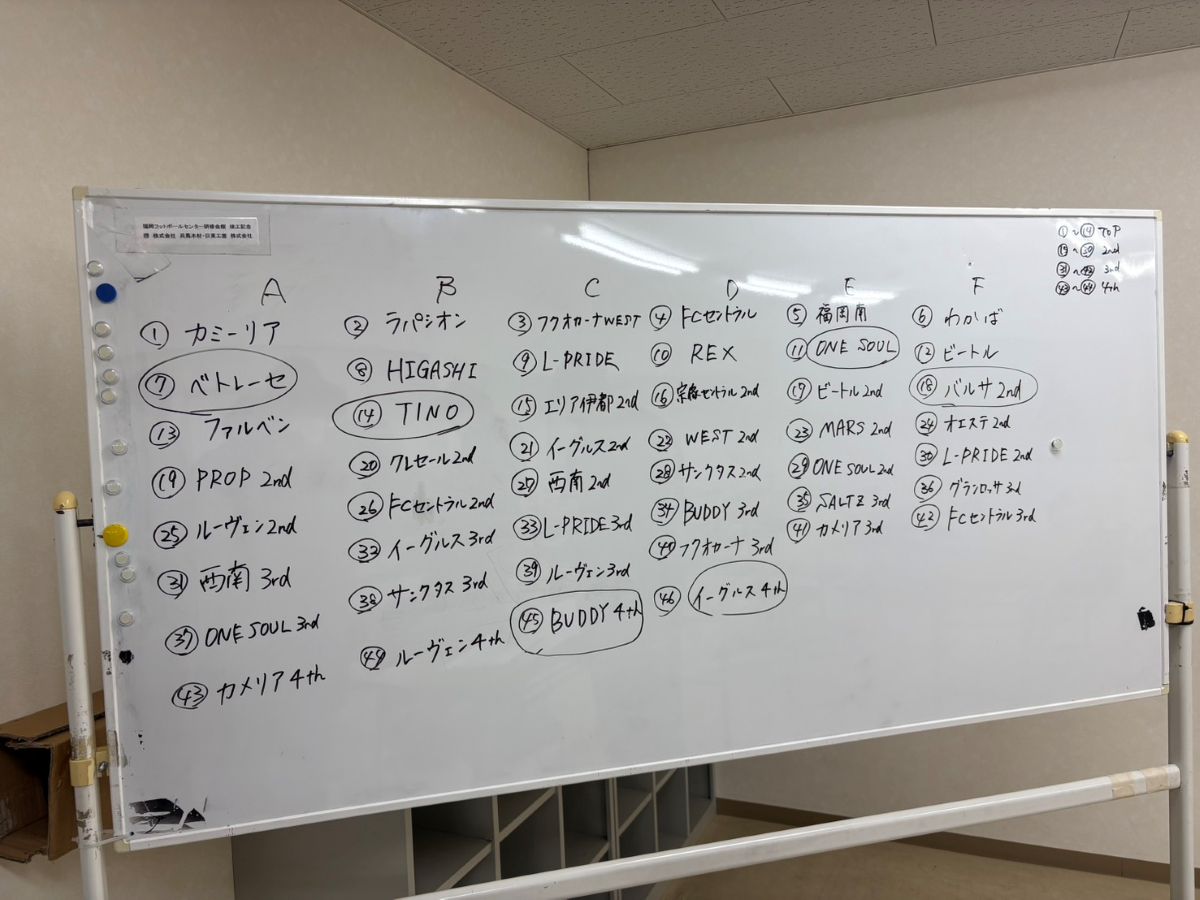 福岡フットボールセンター研修会館 竣工記念
贈 株式会社 兵馬木材・日東工業 株式会社
①〜⑭ TOP
⑮〜㉚ 2nd
㉛〜㊷ 3rd
㊸〜㊻ 4th
A B C D E F
① カミーリア
⑦ ベトレーセ
⑬ ファルベン
⑲ PROP 2nd
㉕ ルーヴェン 2nd
㉛ 西南 3rd
㊲ ONE SOUL 3rd
㊸ カメリア 4th
② ラパシオン
⑧ HIGASHI
⑭ TINO
⑳ クレセール 2nd
㉖ FCセントラル 2nd
㉜ イーグルス 3rd
㊳ サンクタス 3rd
㊹ ルーヴェン 4th
③ フクオカーナWEST
⑨ L-PRIDE
⑮ エリア伊都 2nd
㉑ イーグルス 2nd
㉗ 西南 2nd
㉝ L-PRIDE 3rd
㊴ ルーヴェン 3rd
㊺ BUDDY 4th
④ FCセントラル
⑩ REX
⑯ 宗像セントラル 2nd
㉒ WEST 2nd
㉘ サンクタス 2nd
㉞ BUDDY 3rd
㊵ フクオカーナ 3rd
㊻ イーグルス 4th
⑤ 福岡南
⑪ ONE SOUL
⑰ ビートル 2nd
㉓ MARS 2nd
㉙ ONE SOUL 2nd
㉟ SALTZ 3rd
㊶ カメリア 3rd
⑥ わかば
⑫ ビートル
⑱ バルサ 2nd
㉔ オエステ 2nd
㉚ L-PRIDE 2nd
㊱ グランロッサ 3rd
㊷ FCセントラル 3rd